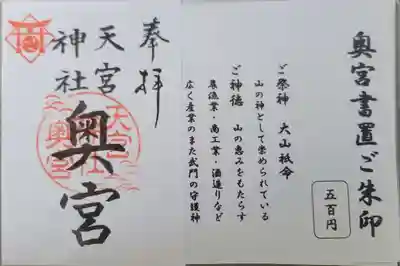 奥宮書置ご朱印
五百円
ご祭神 大山祇命
山の神として崇められている
ご神徳 山の恵みをもたらす
農漁業・商工業・酒造りなど
広く産業のまた武門の守護神
奉拝
天宮神社
奥宮
天宮社奥宮